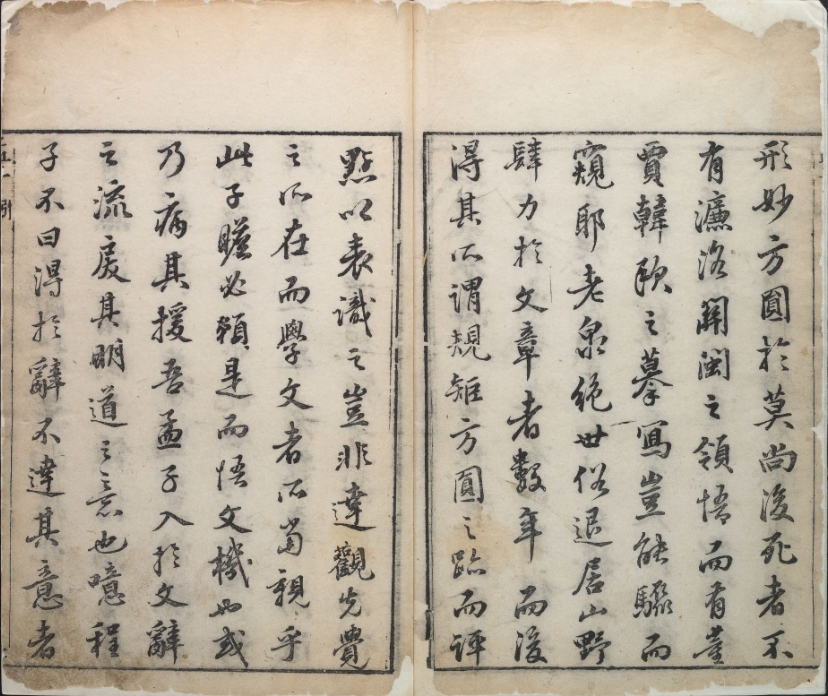 形妙方圓於莫尚後死者不
有濂洛關閩之領悟而有董
賈韓歐之摹寫豈能驟而
窺耶老泉絕世俗退居山野
肆力於文章者數年而後
得其所謂規矩方圓之跡而評
點以表識之豈非達觀先覺
之所在而學文者所當親乎
此子瞻必賴是而悟文機也或
乃病其援吾孟子入於文辭
之流戾其明道之意也噫程
子不曰得於辭不達其意者
引